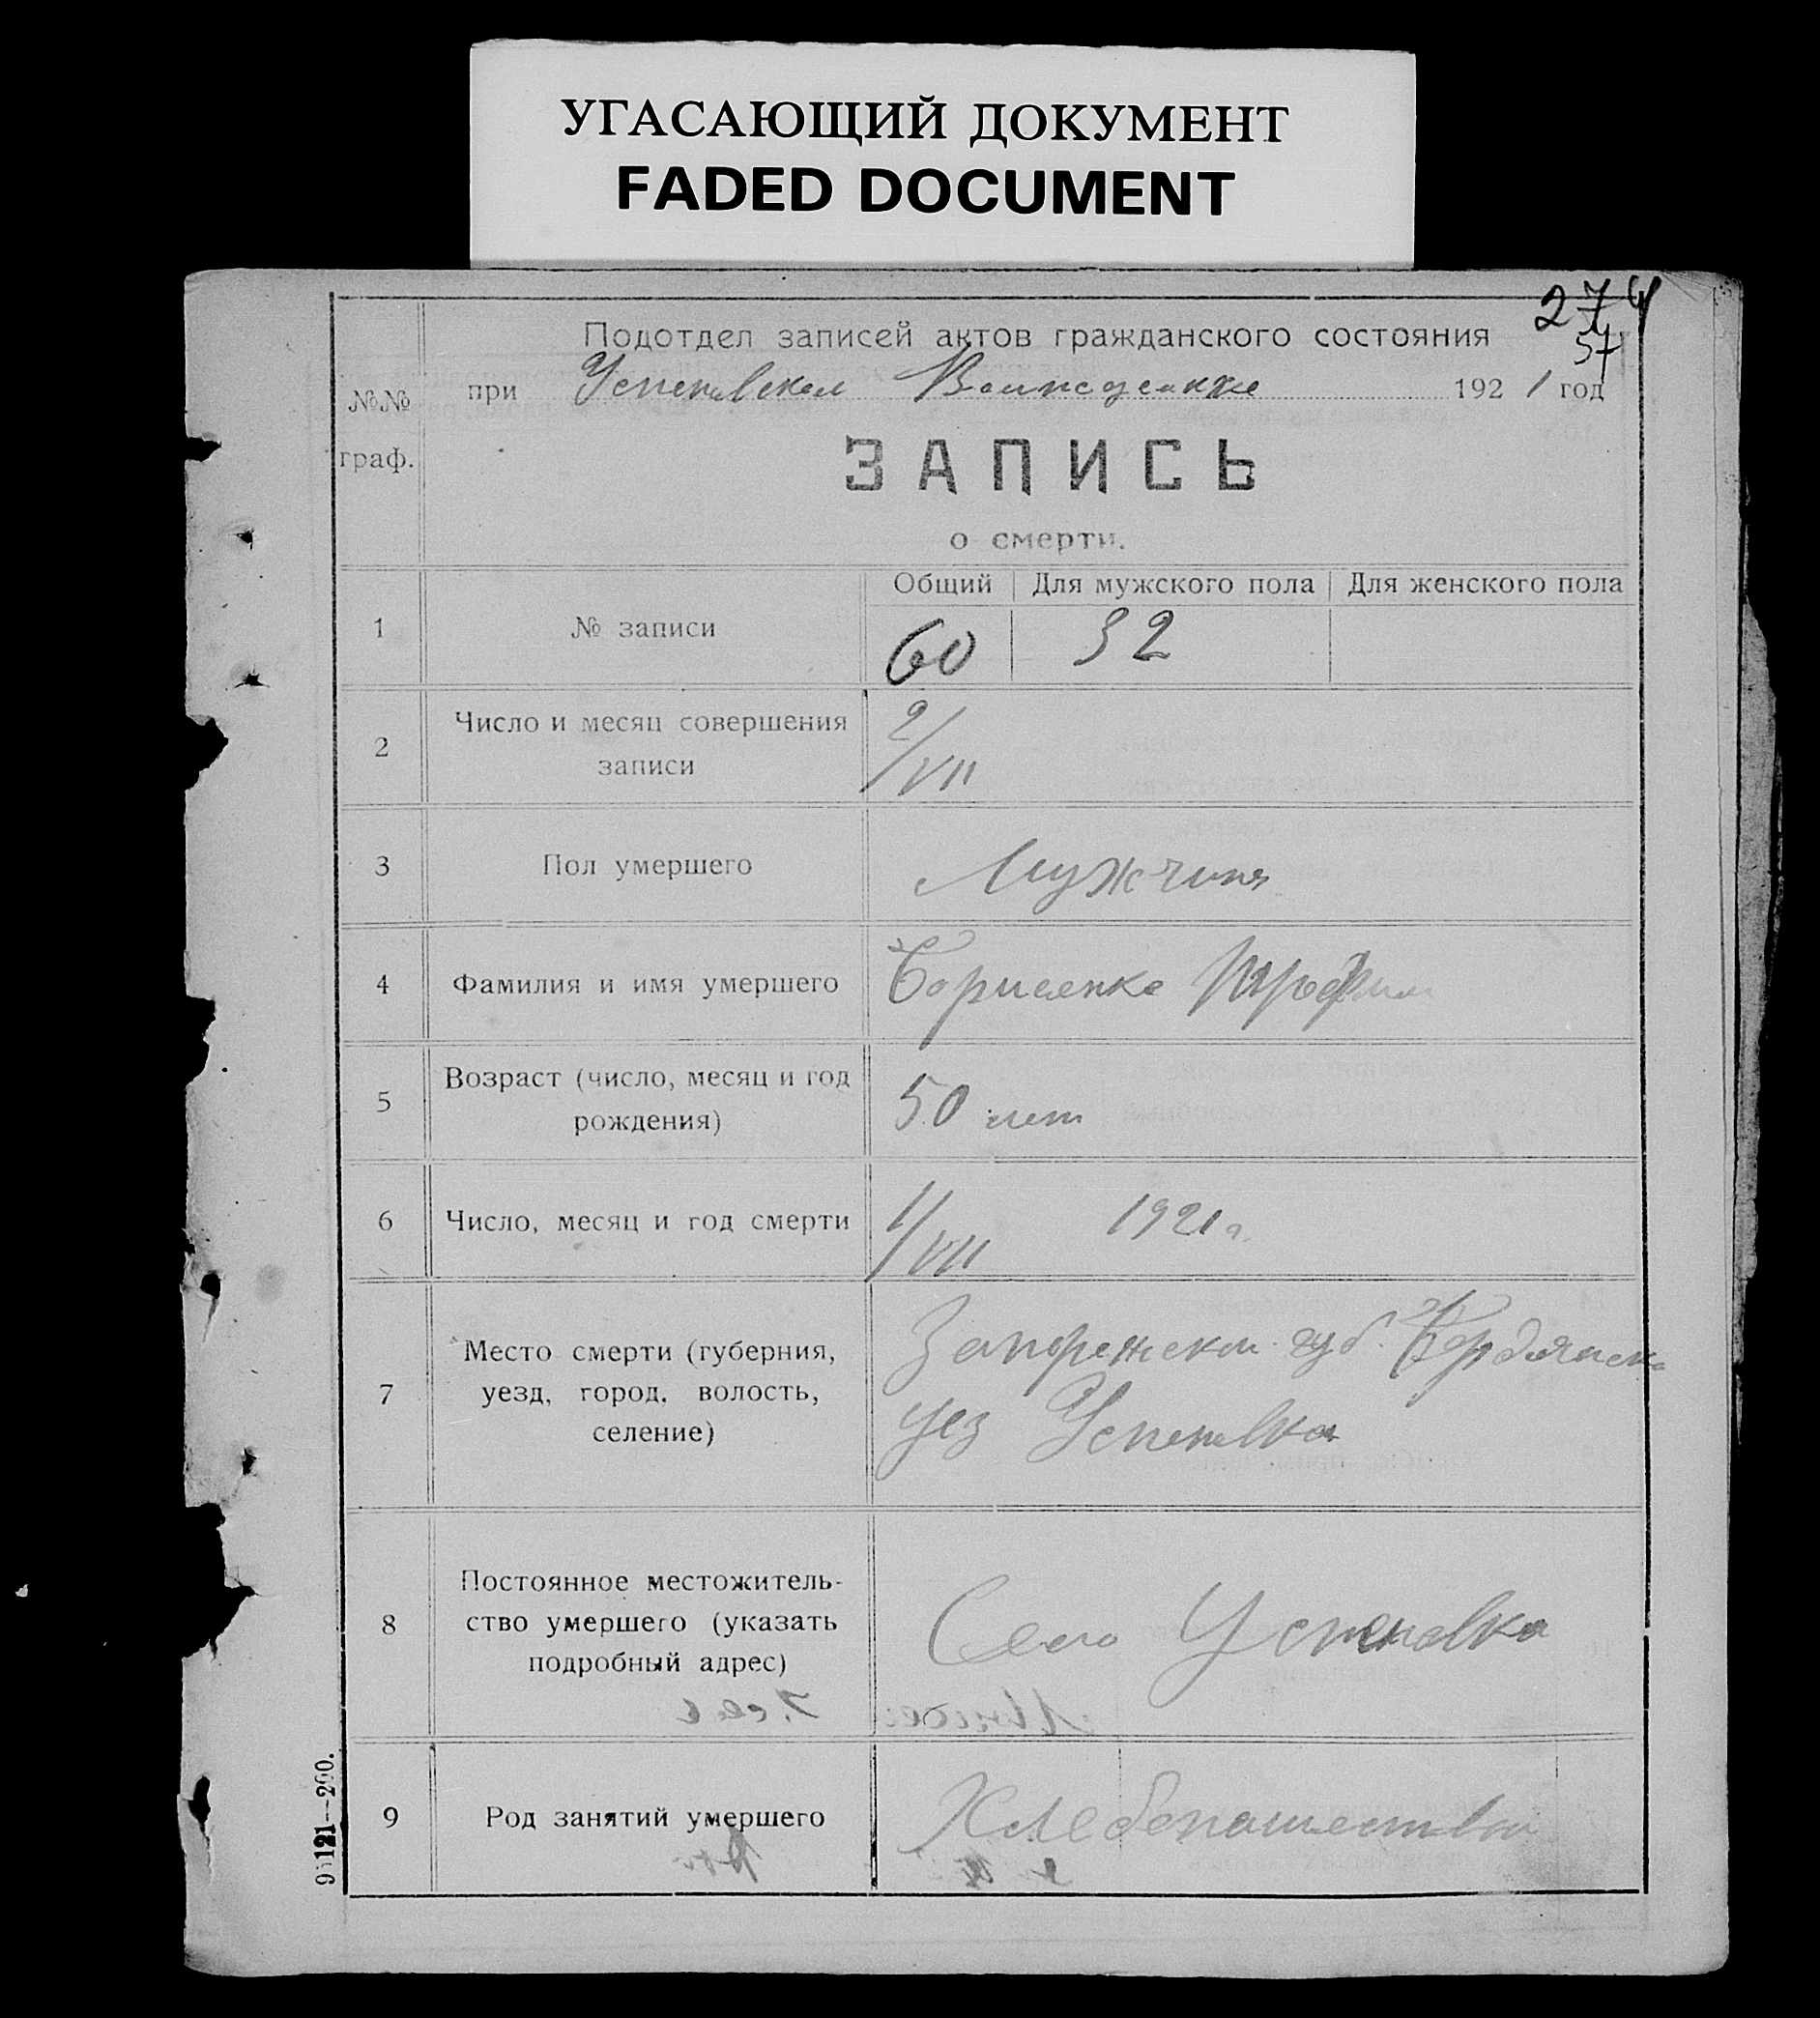 УГАСАЮЩИЙ ДОКУМЕНТ
FADED DOCUMENT
274
57
Подотдел записей актов гражданского состояния
при Успеновском Волисполкоме 1921 год
№№
граф.
ЗАПИСЬ
о смерти.
Общий Для мужского пола Для женского пола
1 № записи 60 32
2 Число и месяц совершения
записи 2/VII
3 Пол умершего Мужчина
4 Фамилия и имя умершего Борисенко Трофим
5 Возраст (число, месяц и год
рождения) 50 лет
6 Число, месяц и год смерти 1/VII 1921 г.
7 Место смерти (губерния,
уезд, город, волость,
селение)
Запорожской губ. Бердянск
уез Успеновка
8 Постоянное местожитель-
ство умершего (указать
подробный адрес)
Село Успеновка
9 Род занятий умершего Хлебопашество